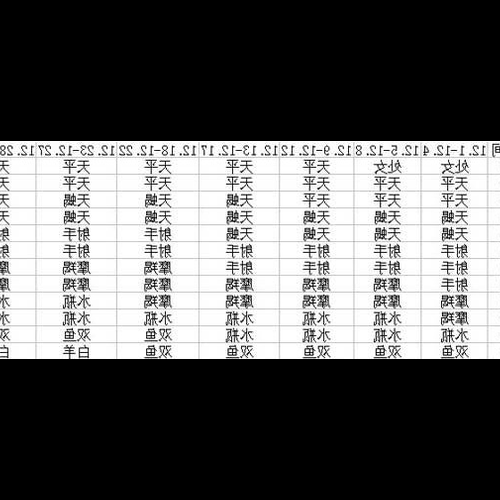 间 12.1-12.4 12.5-12.8 12.9-12.12 12.13-12.17 12.18-12.22 12.23-12.27 12.28
处女 处女 天平 天平 天平 天平 天
天平 天平 天平 天平 天平 天平 天
天平 天平 天平 天蝎 天蝎 天蝎 天
天蝎 天蝎 天蝎 天蝎 天蝎 天蝎 天
天蝎 天蝎 天蝎 天蝎 射手 射手 射
射手 射手 射手 射手 射手 射手 射
射手 射手 射手 射手 摩羯 摩羯 摩
射手 摩羯 摩羯 摩羯 摩羯 摩羯 摩
摩羯 摩羯 摩羯 摩羯 摩羯 水瓶 水
摩羯 水瓶 水瓶 水瓶 水瓶 水瓶 水
水瓶 水瓶 水瓶 水瓶 双鱼 双鱼 双
双鱼 双鱼 双鱼 双鱼 双鱼 白羊 白